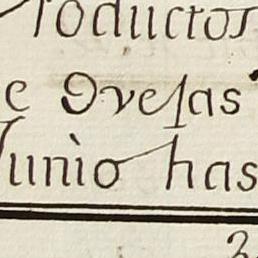 Productos
e Ovejas
Junio has
2